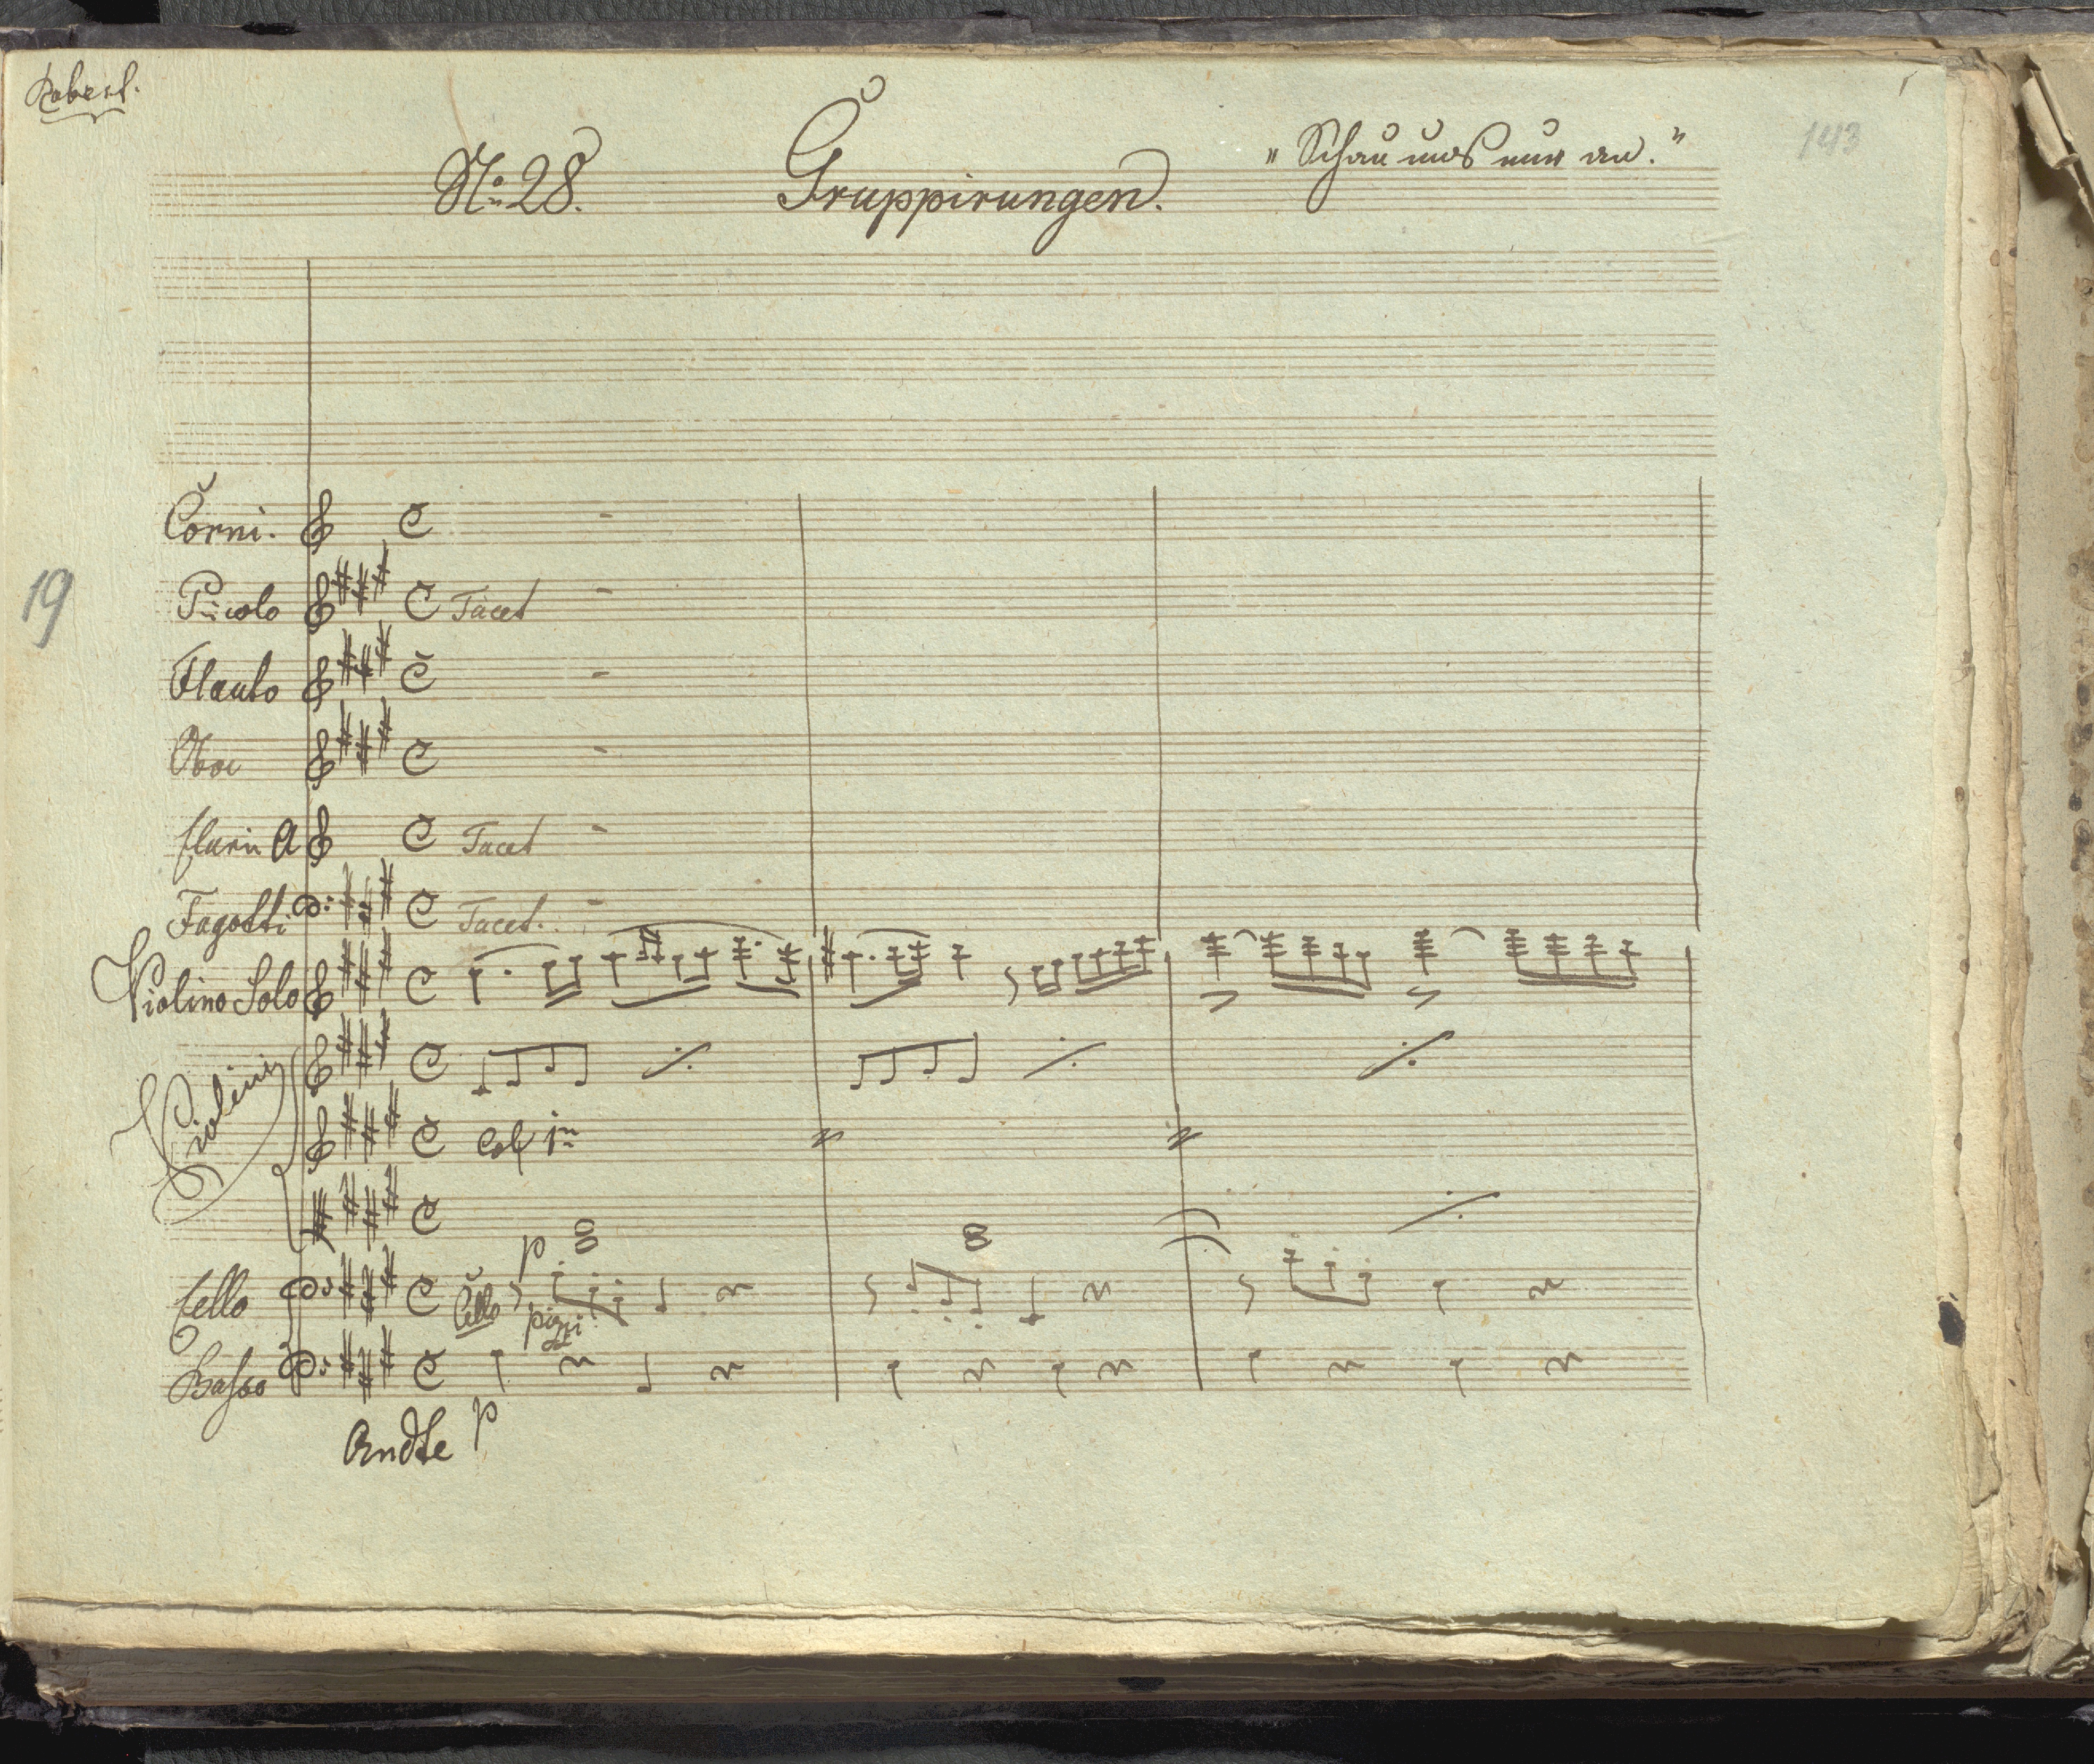 Robert.
No. 28. Gruppirungen. "Schau uns nur an."
143
19
Corni.
Piccolo Tacet
Flauto
Oboe
Clarin A Tacet
Fagotti Tacet.
Violino Solo
Violini
Col 1mo
p
Cello Cello pizzi
Basso
Andte p